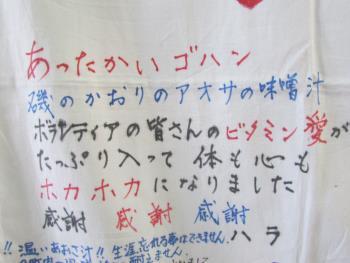 あったかいゴハン
磯のかおりのアオサの味噌汁
ボランティアの皆さんのビタミン愛が
たっぷり入って 体も心も
ホカホカになりました
感謝 感謝 感謝
ハラ
!! 温いあおさ汁!! 生涯忘れる事はできません。